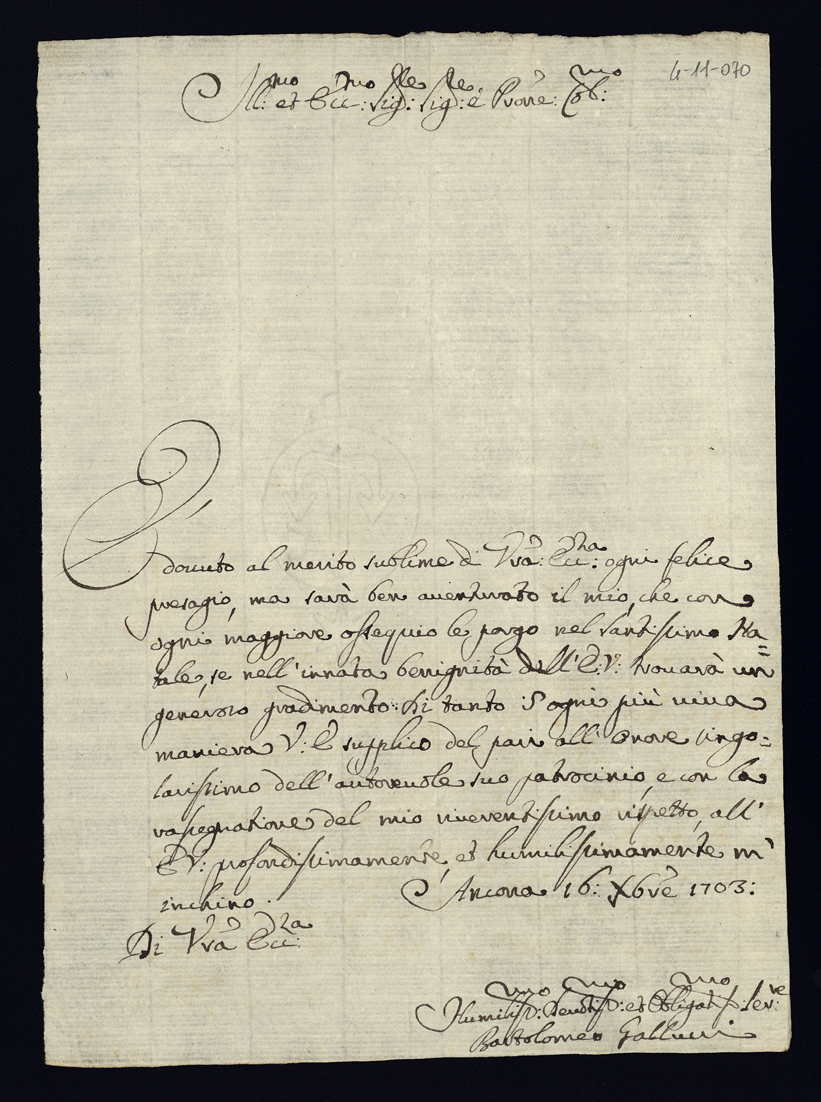 4-11-070
Ill:mo et Ecc:mo Sig:re Sig:re e Prone: Col:mo
È dovuto al merito sublime di Vra: Ecc:za ogni felice
presagio, ma sarà ben auenturato il mio, che con
ogni maggiore ossequio le porgo nel Santissimo Na=
tale, se nell'innata benignità dell'E:V: trouarà un
generoso gradimento: Di tanto P ogni più uiua
maniera V: E supplico del pari all'onore singo=
larissimo dell'autoreuole suo patrocinio, e con la
rassegnatione del mio riuerentissimo rispetto, all'
E V: profondissimamente, et humilissimamente m'
inchino.
Ancona 16: Xbre 1703:
Di Vra Ecc:za
Humiliss:mo Deuotiss:mo et Obligatiss:mo Ser:re
Bartolomeo Gallucci